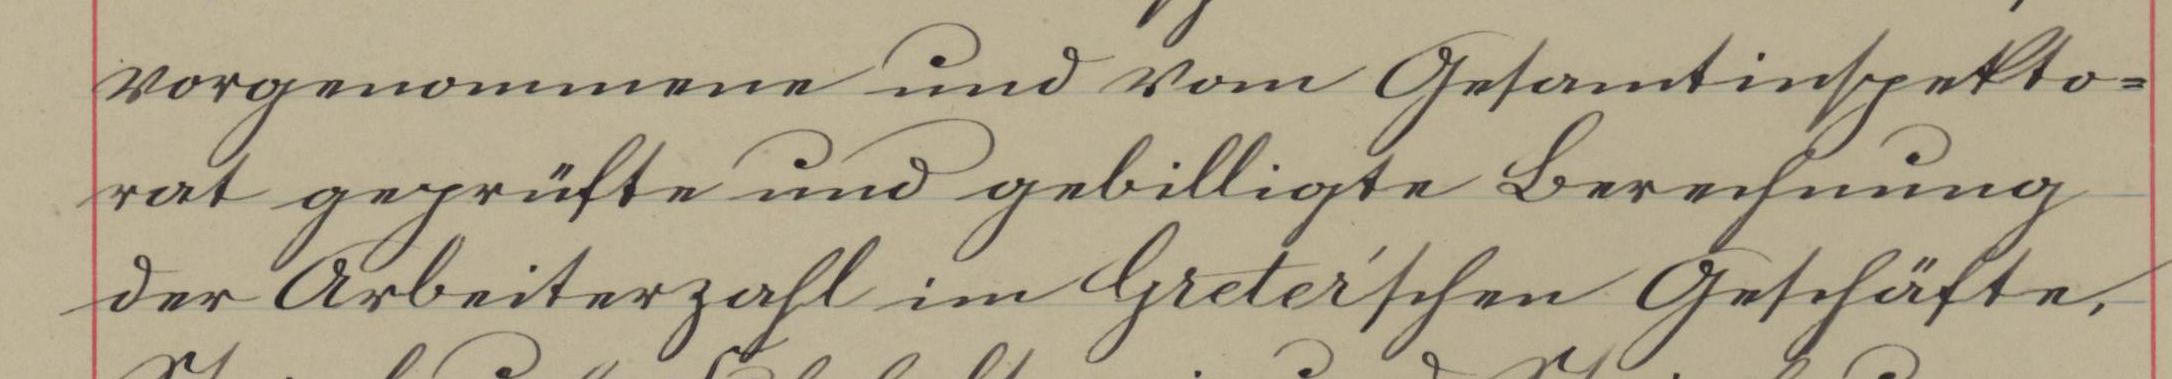 vorgenommene und vom Gesamtinspekto=
rat geprüfte und gebilligte Berechnung
der Arbeiterzahl im Greter'schen Geschäfte,